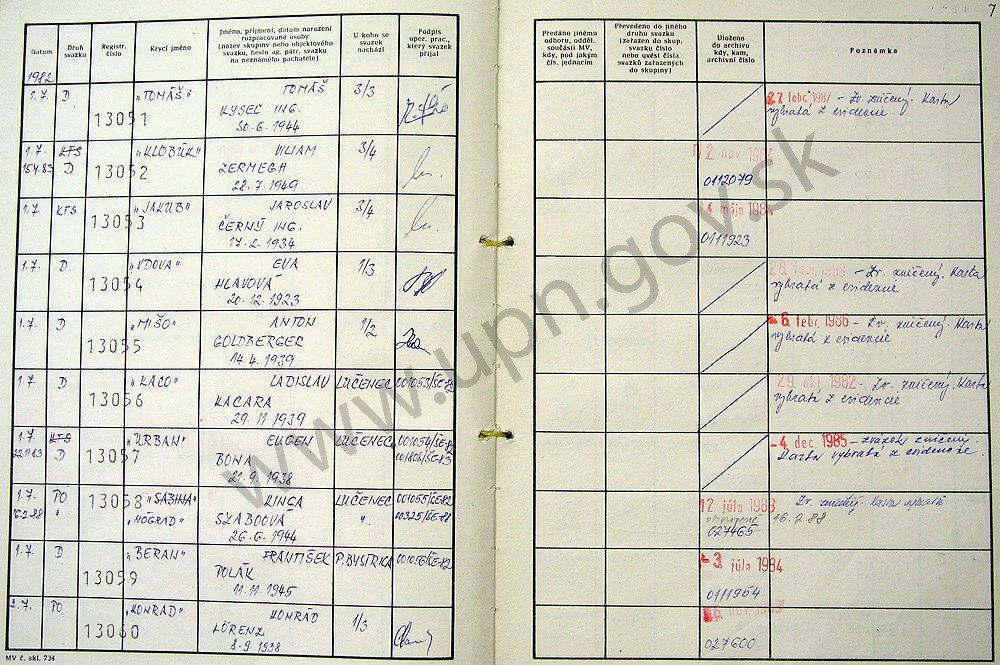 7
Datum
Druh svazku
Registr. číslo
Krycí jméno
Jméno, příjmení, datum narození
rozpracované osoby
(název skupiny nebo objektového
svazku, heslo ag. pátr. svazku
na neznámého pachatele)
U koho se
svazek
nachází
Podpis
oper. prac.,
který svazek
přijal
Předáno jinému
odboru, odděl.
součásti MV,
kdy, pod jakým
čís. jednacím
Převedeno do jiného
druhu svazku
(zařazen do skup.
svazku číslo
nebo uvést čísla
svazků zařazených
do skupiny)
Uloženo
do archivu
kdy, kam,
archivní číslo
Poznámka
1982
1.7. D 13051 "TOMÁŠ" TOMÁŠ 3/3
KYSEĽ ING.
30.6.1944
27. febr. 1987 - Zv. zničený. Karta
vybratá z evidencie
1.7. KTS 13052 "KLOBÚK" VILIAM 3/4
15.4.83 D ZERMEGH
28.7.1949
2. nov. 1984
0112079
1.7. KTS 13053 "JAKUB" JAROSLAV 3/4
ČERNÝ ING.
17.2.1934
4. mája 1984
0111923
1.7. D 13054 "VDOVA" EVA 1/3
HLAVOVÁ
20.12.1923
Zv. zničený. Karta
vybratá z evidencie
1.7. D 13055 "MIŠO" ANTON 1/2
GOLDBERGER
14.4.1939
6. febr. 1986 - Zv. zničený. Karta
vybratá z evidencie
1.7. D 13056 "KACO" LADISLAV LUČENEC 001053/ŠE-82
KACARA
29.11.1939
29. okt. 1982 - Zv. zničený. Karta
vybratá z evidencie
1.7. KTS 13057 "URBAN" EUGEN LUČENEC 001054/ŠE-82
22.11.83 D BONA 001806/ŠE-83
21.9.1938
-4. dec. 1985 - zväzok zničený.
Karta vybratá z evidencie.
1.7. PO 13058 "SABINA" KINGA LUČENEC 001055/ŠE-82
16.2.88 " "NÓGRAD" SZABOOVÁ " 00325/ŠE-88
26.6.1944
12. júla 1983 Zv. zničený. Karta vybratá
obnovené 16.2.88
027465
1.7. D 13059 "BERAN" FRANTIŠEK P. BYSTRICA 001056/ŠE-82
POLÁK
11.11.1945
- 3. júla 1984
0111954
1.7. PO 13060 "KONRAD" KONRÁD 1/3
LÖRENZ
8.9.1938
027600
MV č. skl. 734
www.upn.gov.sk